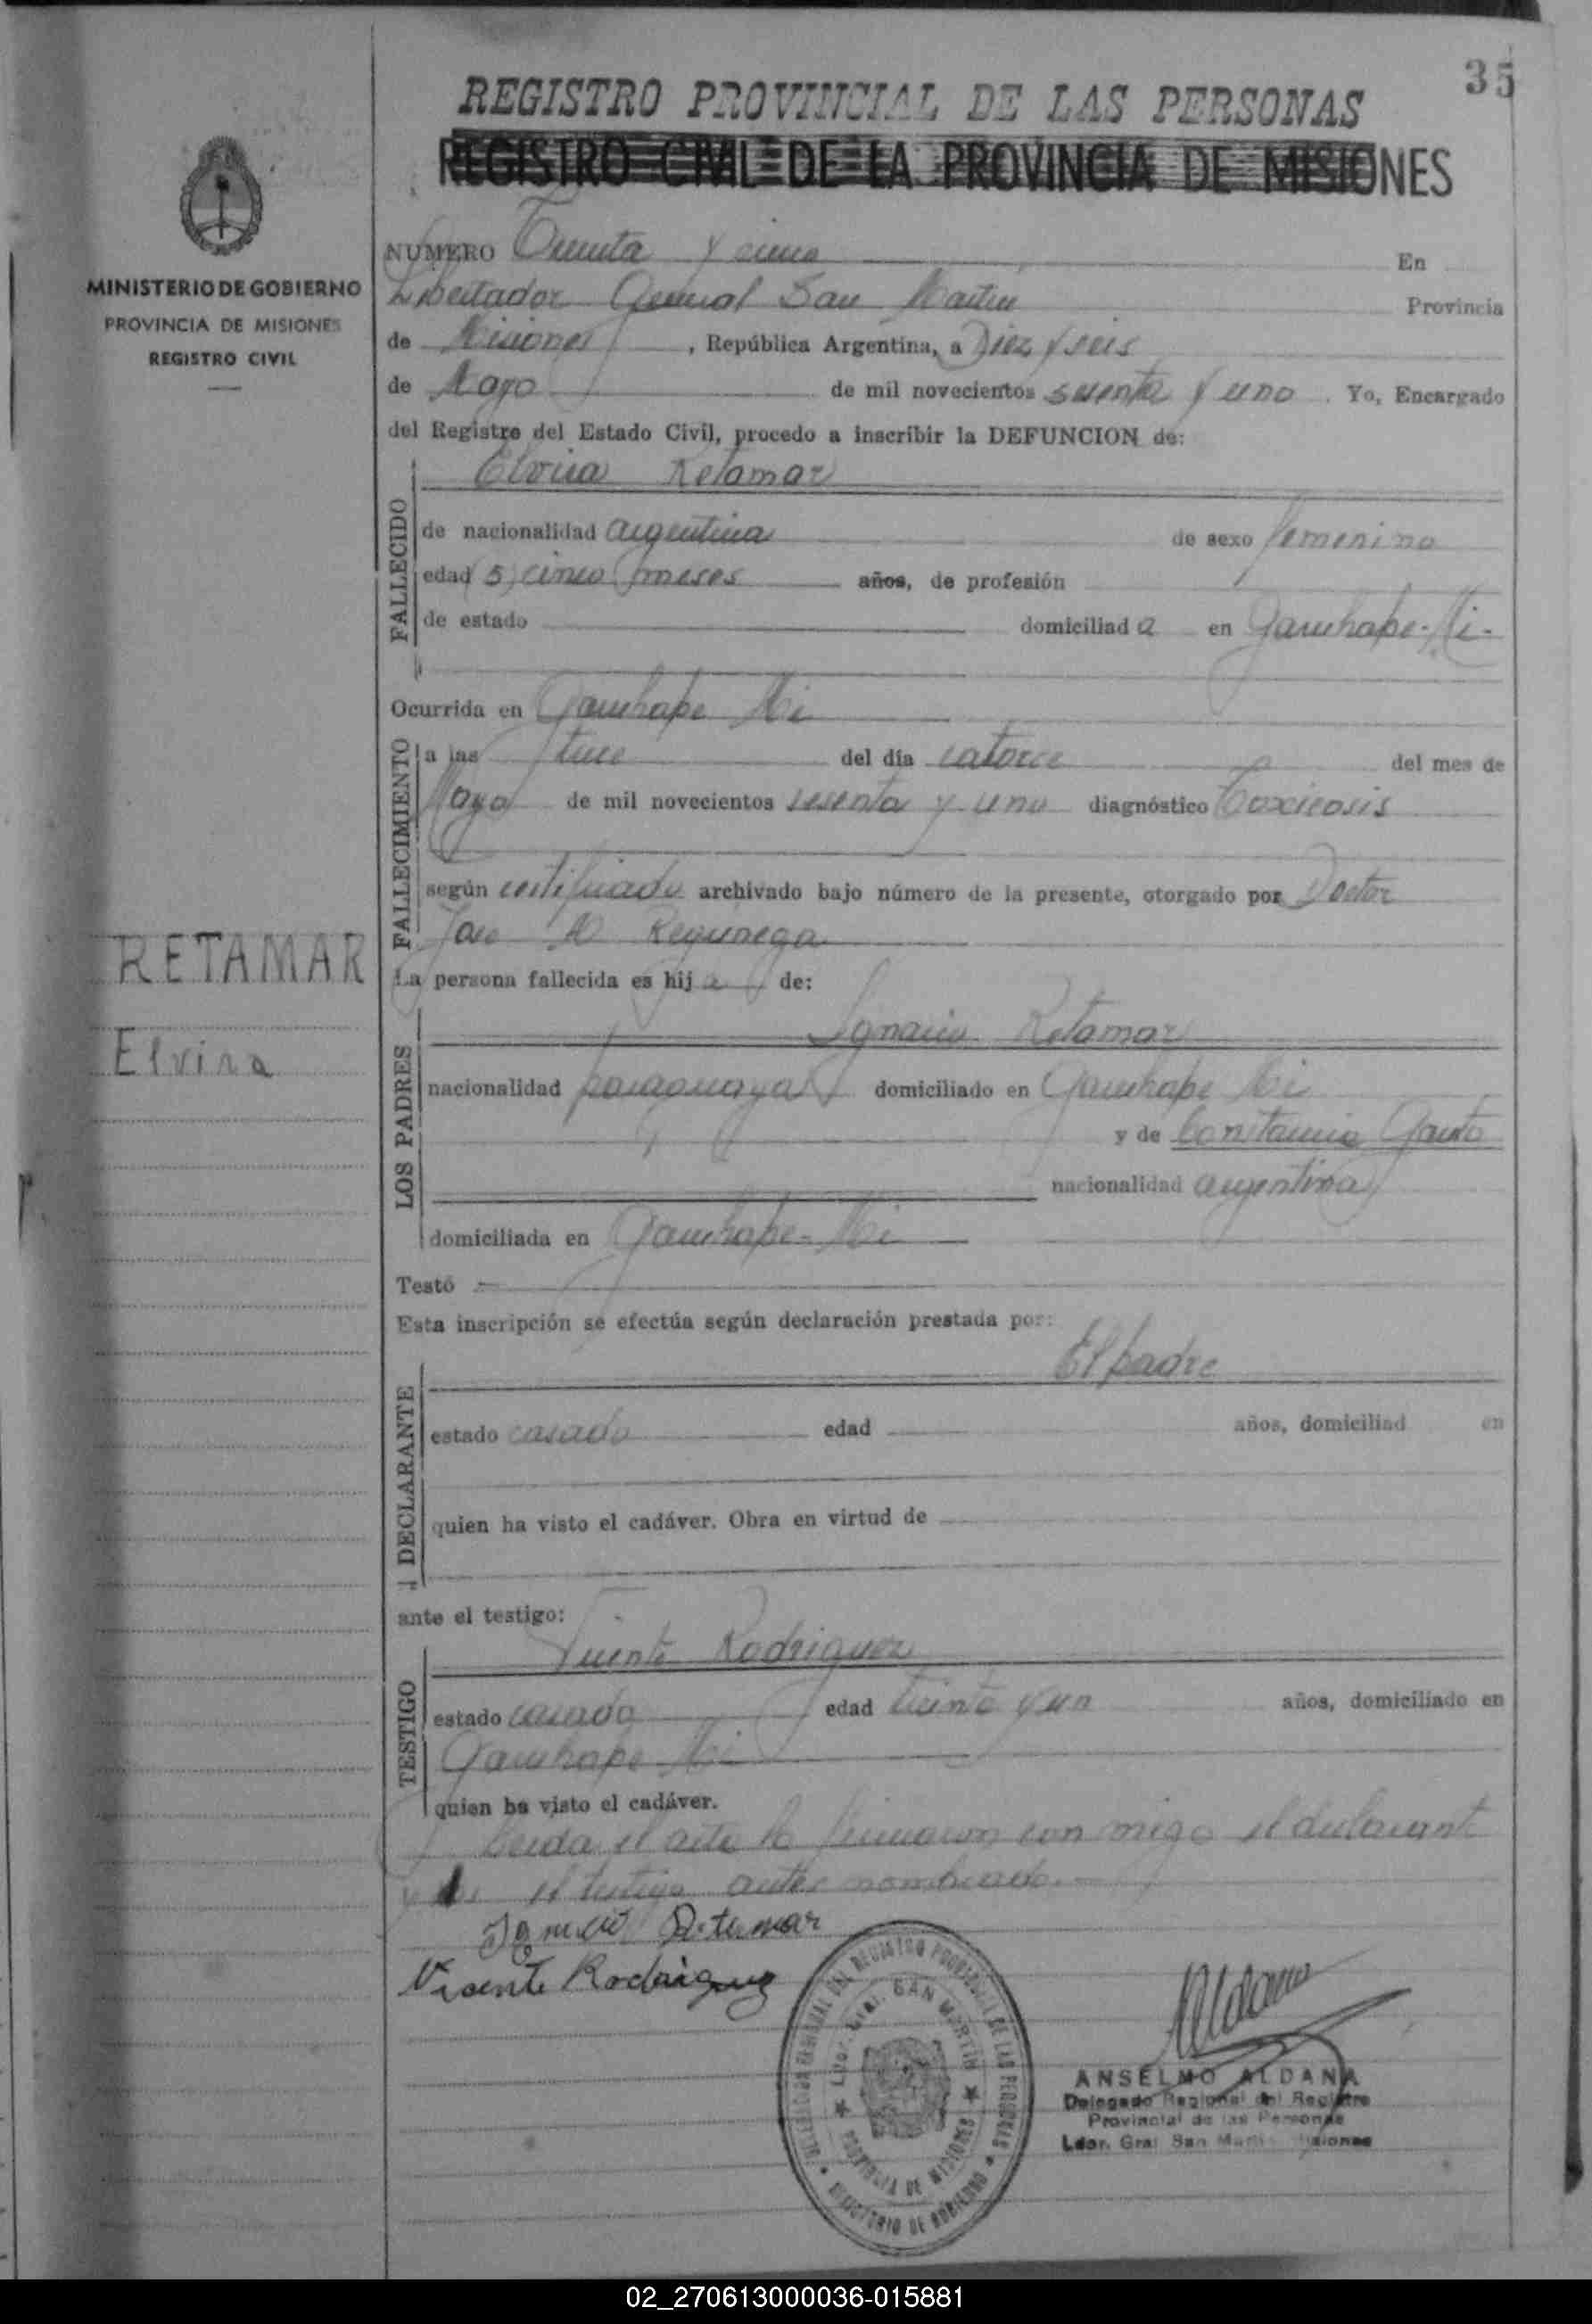 35
REGISTRO PROVINCIAL DE LAS PERSONAS
REGISTRO CIVIL DE LA PROVINCIA DE MISIONES
MINISTERIO DE GOBIERNO
PROVINCIA DE MISIONES
REGISTRO CIVIL
NUMERO Treinta y cinco En
Libertador General San Martin Provincia
de Misiones, República Argentina, a Diez y seis
de Mayo de mil novecientos sesenta y uno. Yo, Encargado
del Registro del Estado Civil, procedo a inscribir la DEFUNCION de:
Elvira Retamar
FALLECIDO
de nacionalidad argentina de sexo femenino
edad (5) cinco meses años, de profesión
de estado domiciliad a en Garuhape-Mi-
Ocurrida en Garuhape Mi
FALLECIMIENTO
a las del día catorce del mes de
Mayo de mil novecientos sesenta y uno diagnóstico Toxicosis
según certificado archivado bajo número de la presente, otorgado por Doctor
Jose M
La persona fallecida es hij a de:
RETAMAR
Elvira
LOS PADRES
Ignacio Retamar
nacionalidad paraguaya domiciliado en Garuhape Mi
y de Constancia
nacionalidad argentina
domiciliada en Garuhape-Mi
Testó
Esta inscripción se efectúa según declaración prestada por:
El padre
DECLARANTE
estado casado edad años, domiciliad en
quien ha visto el cadáver. Obra en virtud de
ante el testigo:
Vicente Rodriguez
TESTIGO
estado casado edad treinta y un años, domiciliado en
Garuhape Mi
quien ha visto el cadáver.
Leida el acta la firmaron con migo el declarante
y el testigo antes nombrado.
Ignacio Retamar
Vicente Rodriguez
DELEGACION REGIONAL DEL REGISTRO PROVINCIAL DE LAS PERSONAS
Ldor. Gral. SAN MARTIN
PROVINCIA DE MISIONES
MINISTERIO DE GOBIERNO
Aldana
ANSELMO ALDANA
Delegado Regional del Registro
Provincial de las Personas
Ldor. Gral San Martin Misiones
02_270613000036-015881